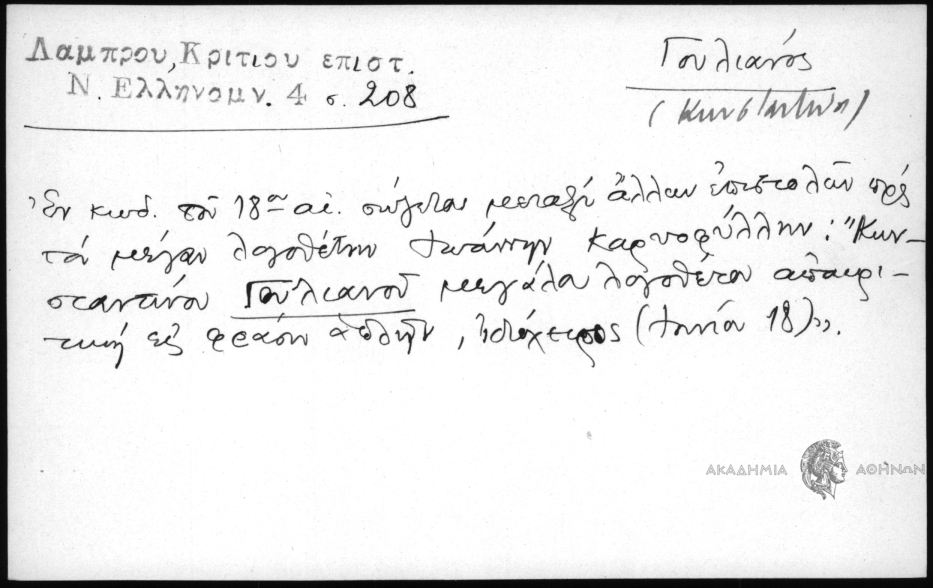 Λαμπρου, Κριτιου επιστ.
Ν. Ελληνομν. 4 σ. 208
Γουλιανός
(Κωνσταντίνος)
Ἐν κωδ. τοῦ 18ου αἰ. σώζεται μεταξὺ ἄλλων ἐπιστολῶν πρὸς
τὸν μέγαν λογοθέτην Ἰωάννην Καρυοφύλλην: "Κων-
σταντίνου Γουλιανοῦ μεγάλου λογοθέτου
τική εἰς, ἰδιόχειρος (Ἰουνίου 18)».
ΑΚΑΔΗΜΙΑ ΑΘΗΝΩΝ